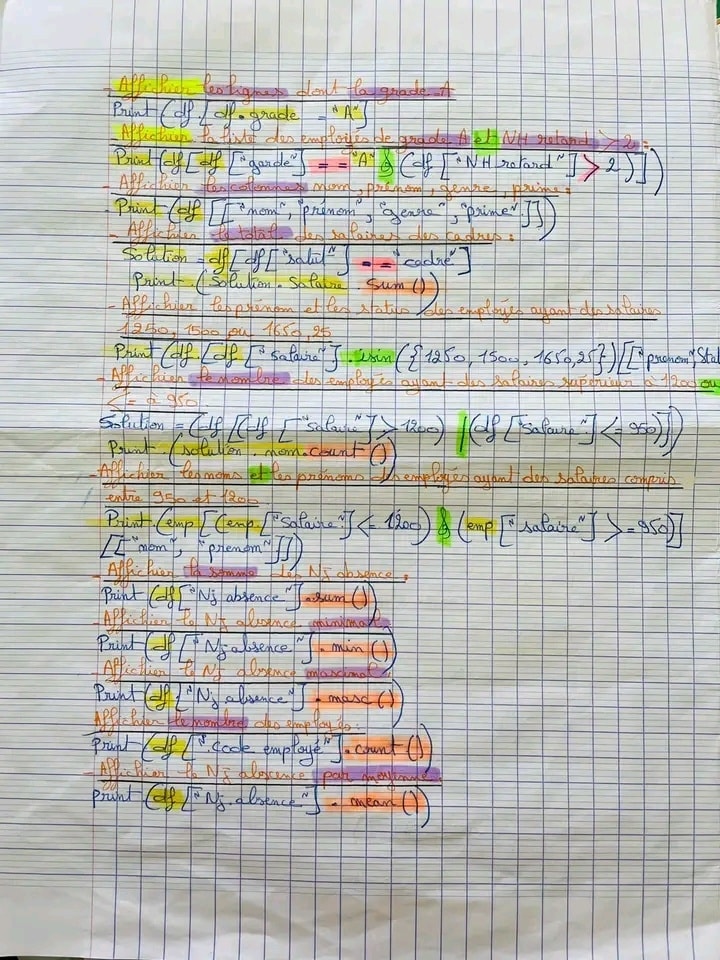 - Afficher les lignes dont la grade A
Print (df [df.grade = "A"]
Afficher la liste des employés de grade A et NH retard > 2 :
Print (df [df ["garde"] == "A" & (df ["NH retard"] > 2)])
- Afficher les colonnes nom, prénom, genre, prime :
Print (df [["nom", "prénom", "genre", "prime"]])
- Afficher le total des salaires des cadres :
Solution = df [df ["salut"] == "cadre"]
Print (Solution . Salaire . Sum ())
- Afficher les prénom et les status des employés ayant des salaires
1250, 1500 ou 1650,25
Print (df [df ["salaire"] . isin ({1250, 1500, 1650,25}) [["prenom", Stat
- Afficher le nombre des employés ayant des salaires supérieur à 1200 ou
<= à 950
Solution = (df [(df ["salaire"] > 1200) | (df ["salaire"] <= 950)])
Print (solution . nom . count ())
- Afficher les noms et les prénoms des employés ayant des salaires compris
entre 950 et 1200
Print (emp [(emp ["Salaire"] <= 1200) & (emp ["salaire"] >= 950)]
[["nom", "prenom"]])
- Afficher la somme des Nj absence :
Print (df ["Nj absence"] . sum ())
- Afficher le Nj absence minimal
Print (df ["Nj absence"] . min ())
- Afficher le Nj absence maximal
Print (df ["Nj absence"] . masc ())
Afficher le nombre des employés :
Print (df [".code employé"] . count ())
- Afficher le Nj absence par moyenne :
Print (df ["Nj absence"] . mean ())